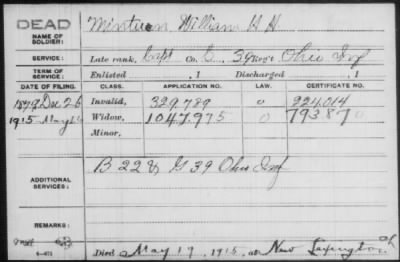 DEAD
NAME OF SOLDIER:
Minturn, William H H
SERVICE:
Late rank, Capt Co. C, 39 Reg't Ohio Inf
TERM OF SERVICE:
Enlisted , 1 Discharged , 1
DATE OF FILING. CLASS. APPLICATION NO. LAW. CERTIFICATE NO.
1879 Dec 26 Invalid, 329.789 o 224.014
1915 May Widow, 1047.975 o 793.870
Minor,
ADDITIONAL SERVICES:
B 22 & G 39 Ohio Inf
REMARKS:
Died May 19, 1915, at New Lexington O